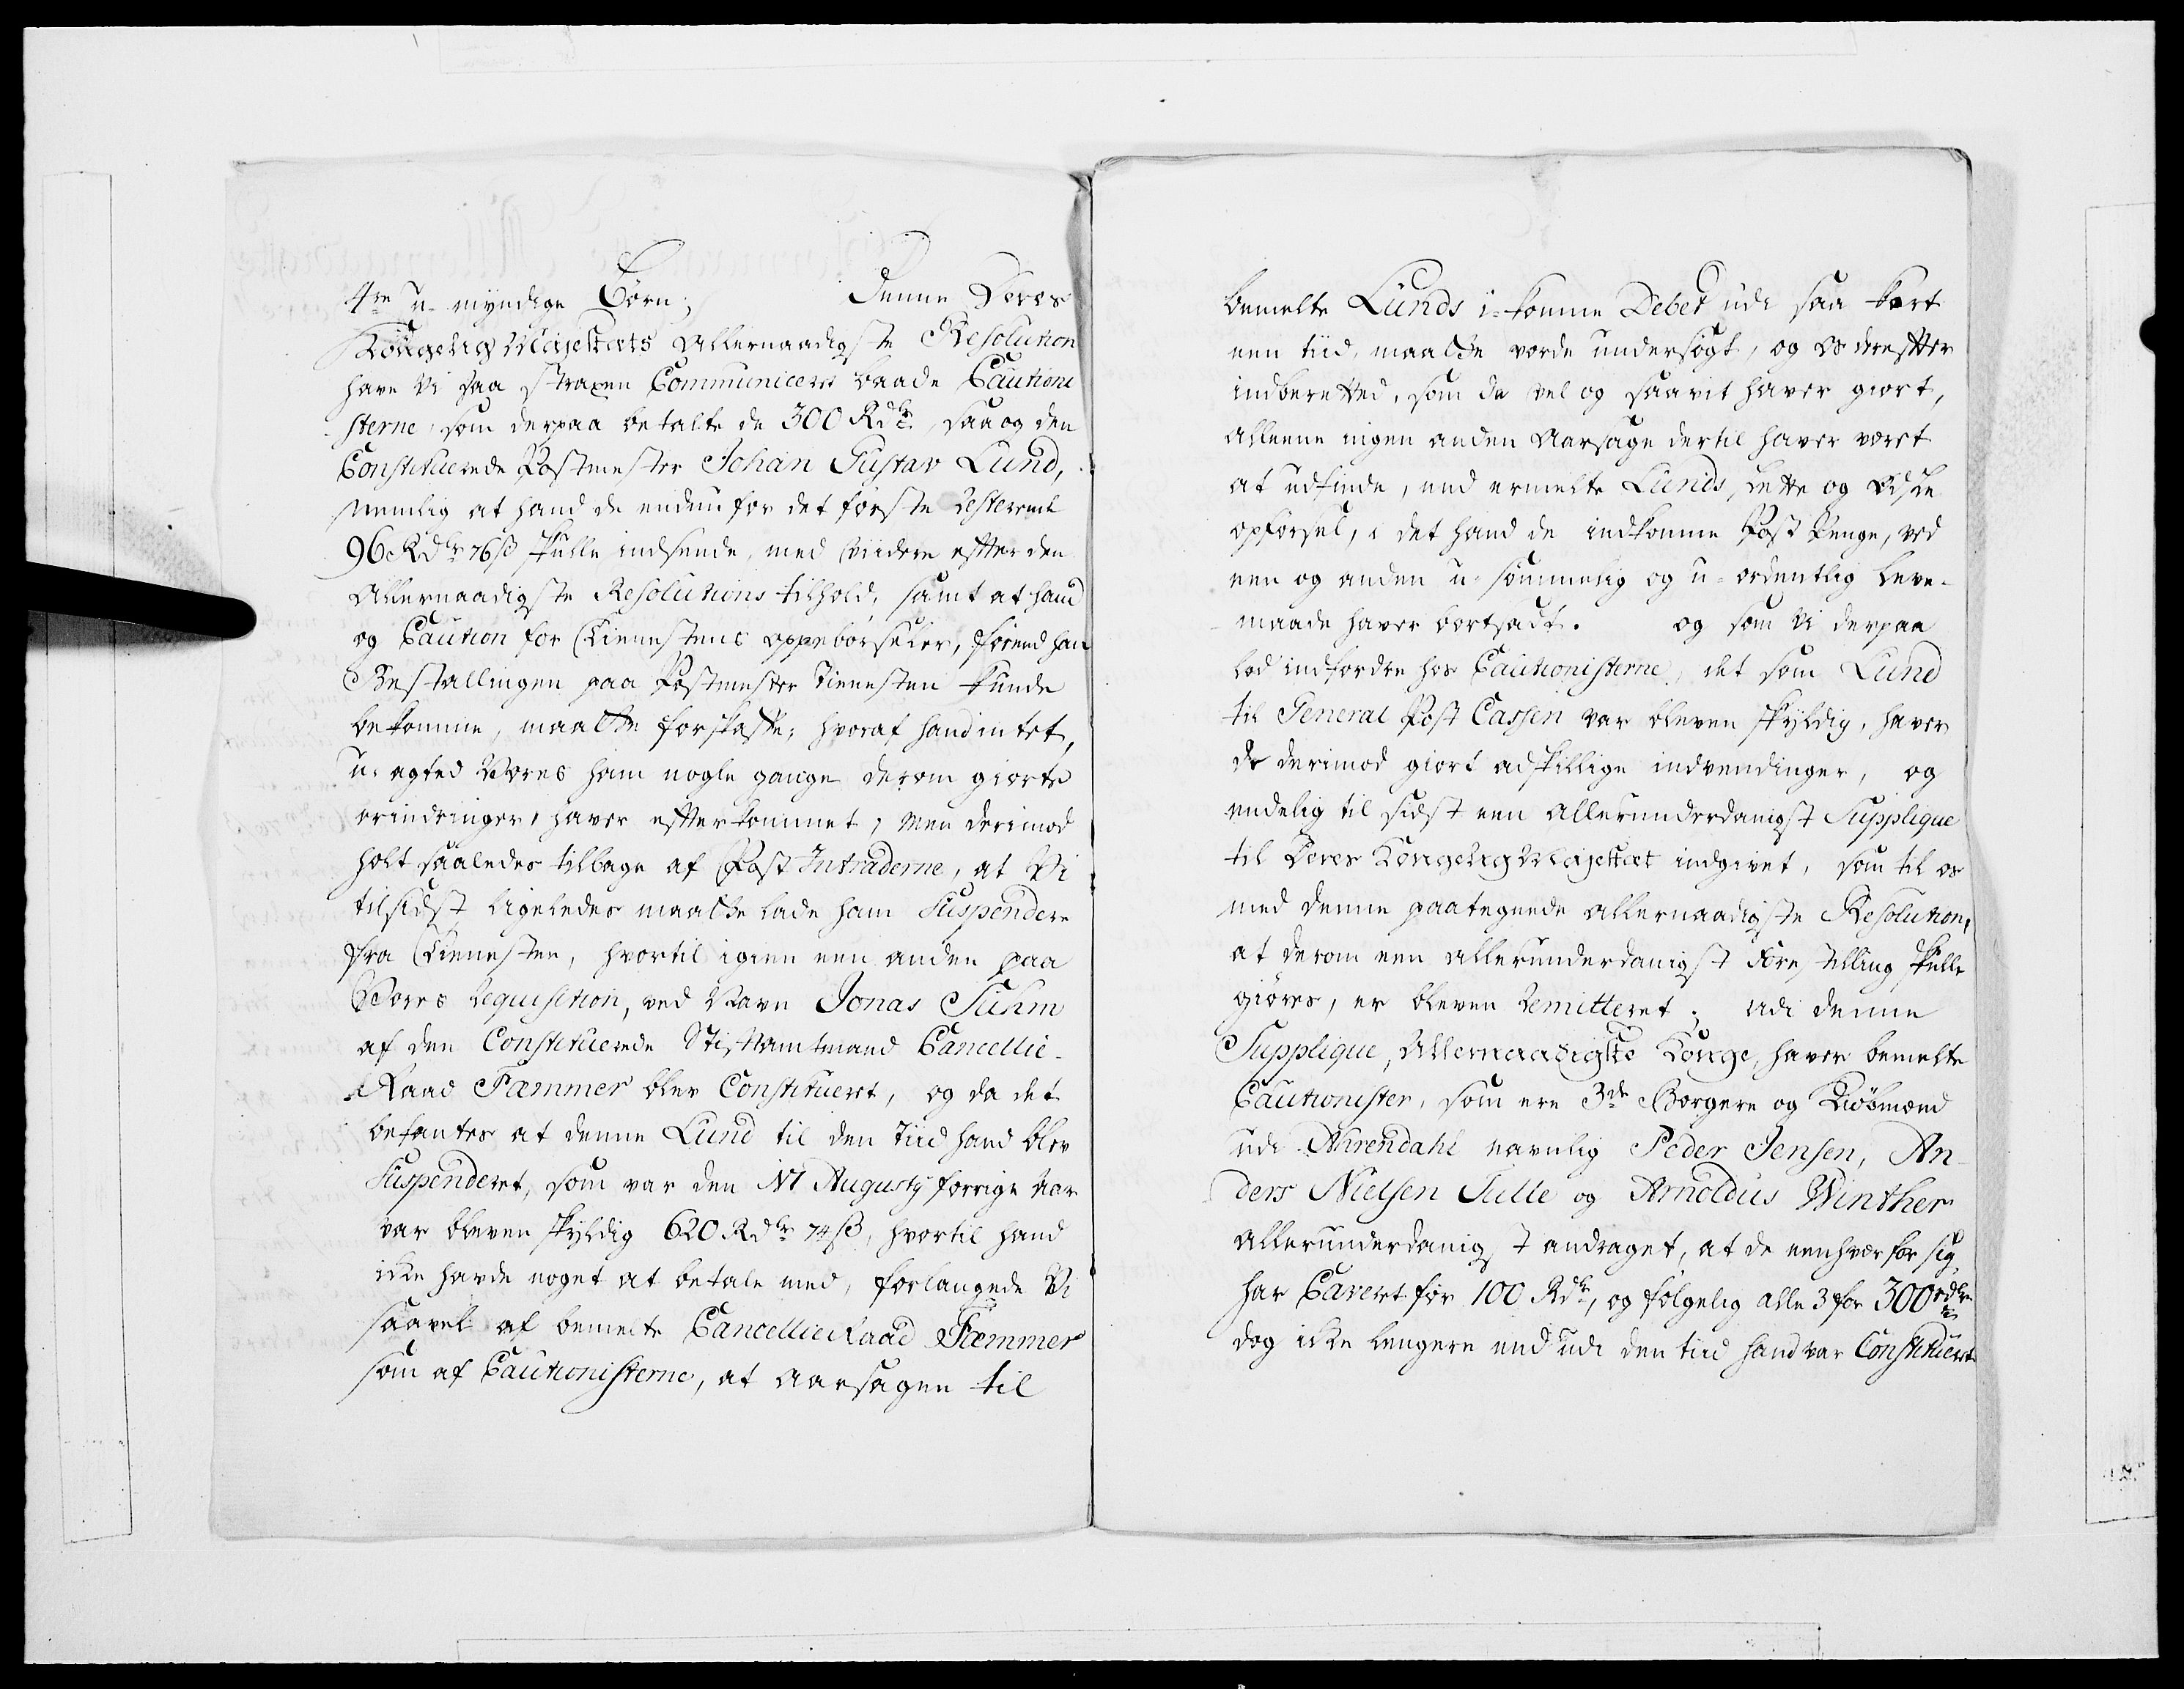 4re u-myndige Børn; Denne Deres
Kongelig Mayestæts Allernaadigste Resolution
have Vi saa straxen Communiceret baade Cautioni
sterne, som derpaa betalte de 300 Rdlr, saa og den
Constituerede Postmester Johan Gustav Lund,
nemlig at hand de enden for det første resterende
96 Rdlr 76 ß skulle indsende, med viidere efter den
Allernaadigste Resolutions tilhold, samt at hand
og Caution for Tienestens oppebørseler, førend han
Bestallingen paa Postmester Tienesten kunde
bekomme, maatte forskaffe; hvoraf hand intet,
u-agted Vores ham nogle gange derom giorte
erindringer, haver efterkommet; Men derimod
holt saaledes tilbage af Post Intraderne, at Vi
tilsidst ligeledes maatte lade ham Suspendere
fra Tienesten, hvortil igien een anden paa
Vores Requisition, ved Navn Jonas Suhm
af den Constituerede Stiftamtmand Cancellie-
Raad Fæmmer blev Constitueret, og da det
befantes at denne Lund til den Tiid hand blev
Suspenderet, som var den 17 Augusty forrige Aar
var bleven skyldig 620 Rdlr 74 ß, hvortil hand
icke havde noget at betale med, forlangede Vi
saavel af bemelte CancellieRaad Fæmmer
som af Cautionisterne, at Aarsagen til
bemelte Lunds i-komne Debet udi saa kort
een tiid, maatte vorde undersøgt, og Os derefter
indberetted, som de vel og saavit haver giort,
alleene ingen anden Aarsage dertil haver været
at udfinde, end ermelte Lunds lette og Ødsle
opførsel, i det hand de indkomne Post Penge, ved
een og anden u-sømmelig og u-ordentlig leve-
maade haver bortsadt. og som Vi derpaa
lod indfordre hos Cautionisterne, det som Lund
til General Post Cassen var bleven skyldig, haver
de derimod giort adskillige indvendinger, og
endelig til sidst een allerunderdanigst Supplique
til Deres Kongelig Mayestæt indgivet, som til os
med denne paategnede allernaadigste Resolution,
at derom een allerunderdanigst Forestelling skulle
giøres, er bleven Remitteret; Udi denne
Supplique, Allernaadigste Konge, haver bemelte
Cautionister, som ere 3de Borgere og Kiøbmænd
udi Ahrendahl navnlig Peder Jensen, An-
ders Nielsen Tulle og Arnoldus Winther
allerunderdanigst andraget, at de eenhver for sig
har Caveret for 100 Rdlr, og følgelig alle 3 for 300 rdlr
dog icke lengere end udi den tiid hand var Constitueret